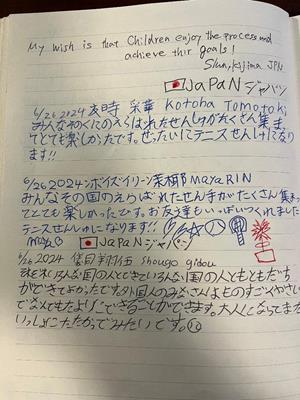 My wish is that Children enjoy the process and
achieve thir goals!
JPN
JaPaN ジャパン
6/26 2024 友時 采華 Kotoha Tomotoki
みんなそのくにのえらばれたせんしゅがたくさん集ま
ってとても楽しかったです。ぜったいにテニスせんしゅになり
ます!!
6/26 2024 ボイズイリーン茉椰 Maya RIN
みんなその国のえらばれたせん手がたくさん集まっ
てとても楽しかったです。お友達もいっぱいつくれました
テニスせんしゅになります!!
Maya
JaPaN ジャパン
6/26 2024 shougo gidou
いろんな国の人とできていろんな国の人ともともだち
ができてよかったです。外国人のみなさんはものすごくやさしい
大人になってまた
いっしょにたたかってみたいです。